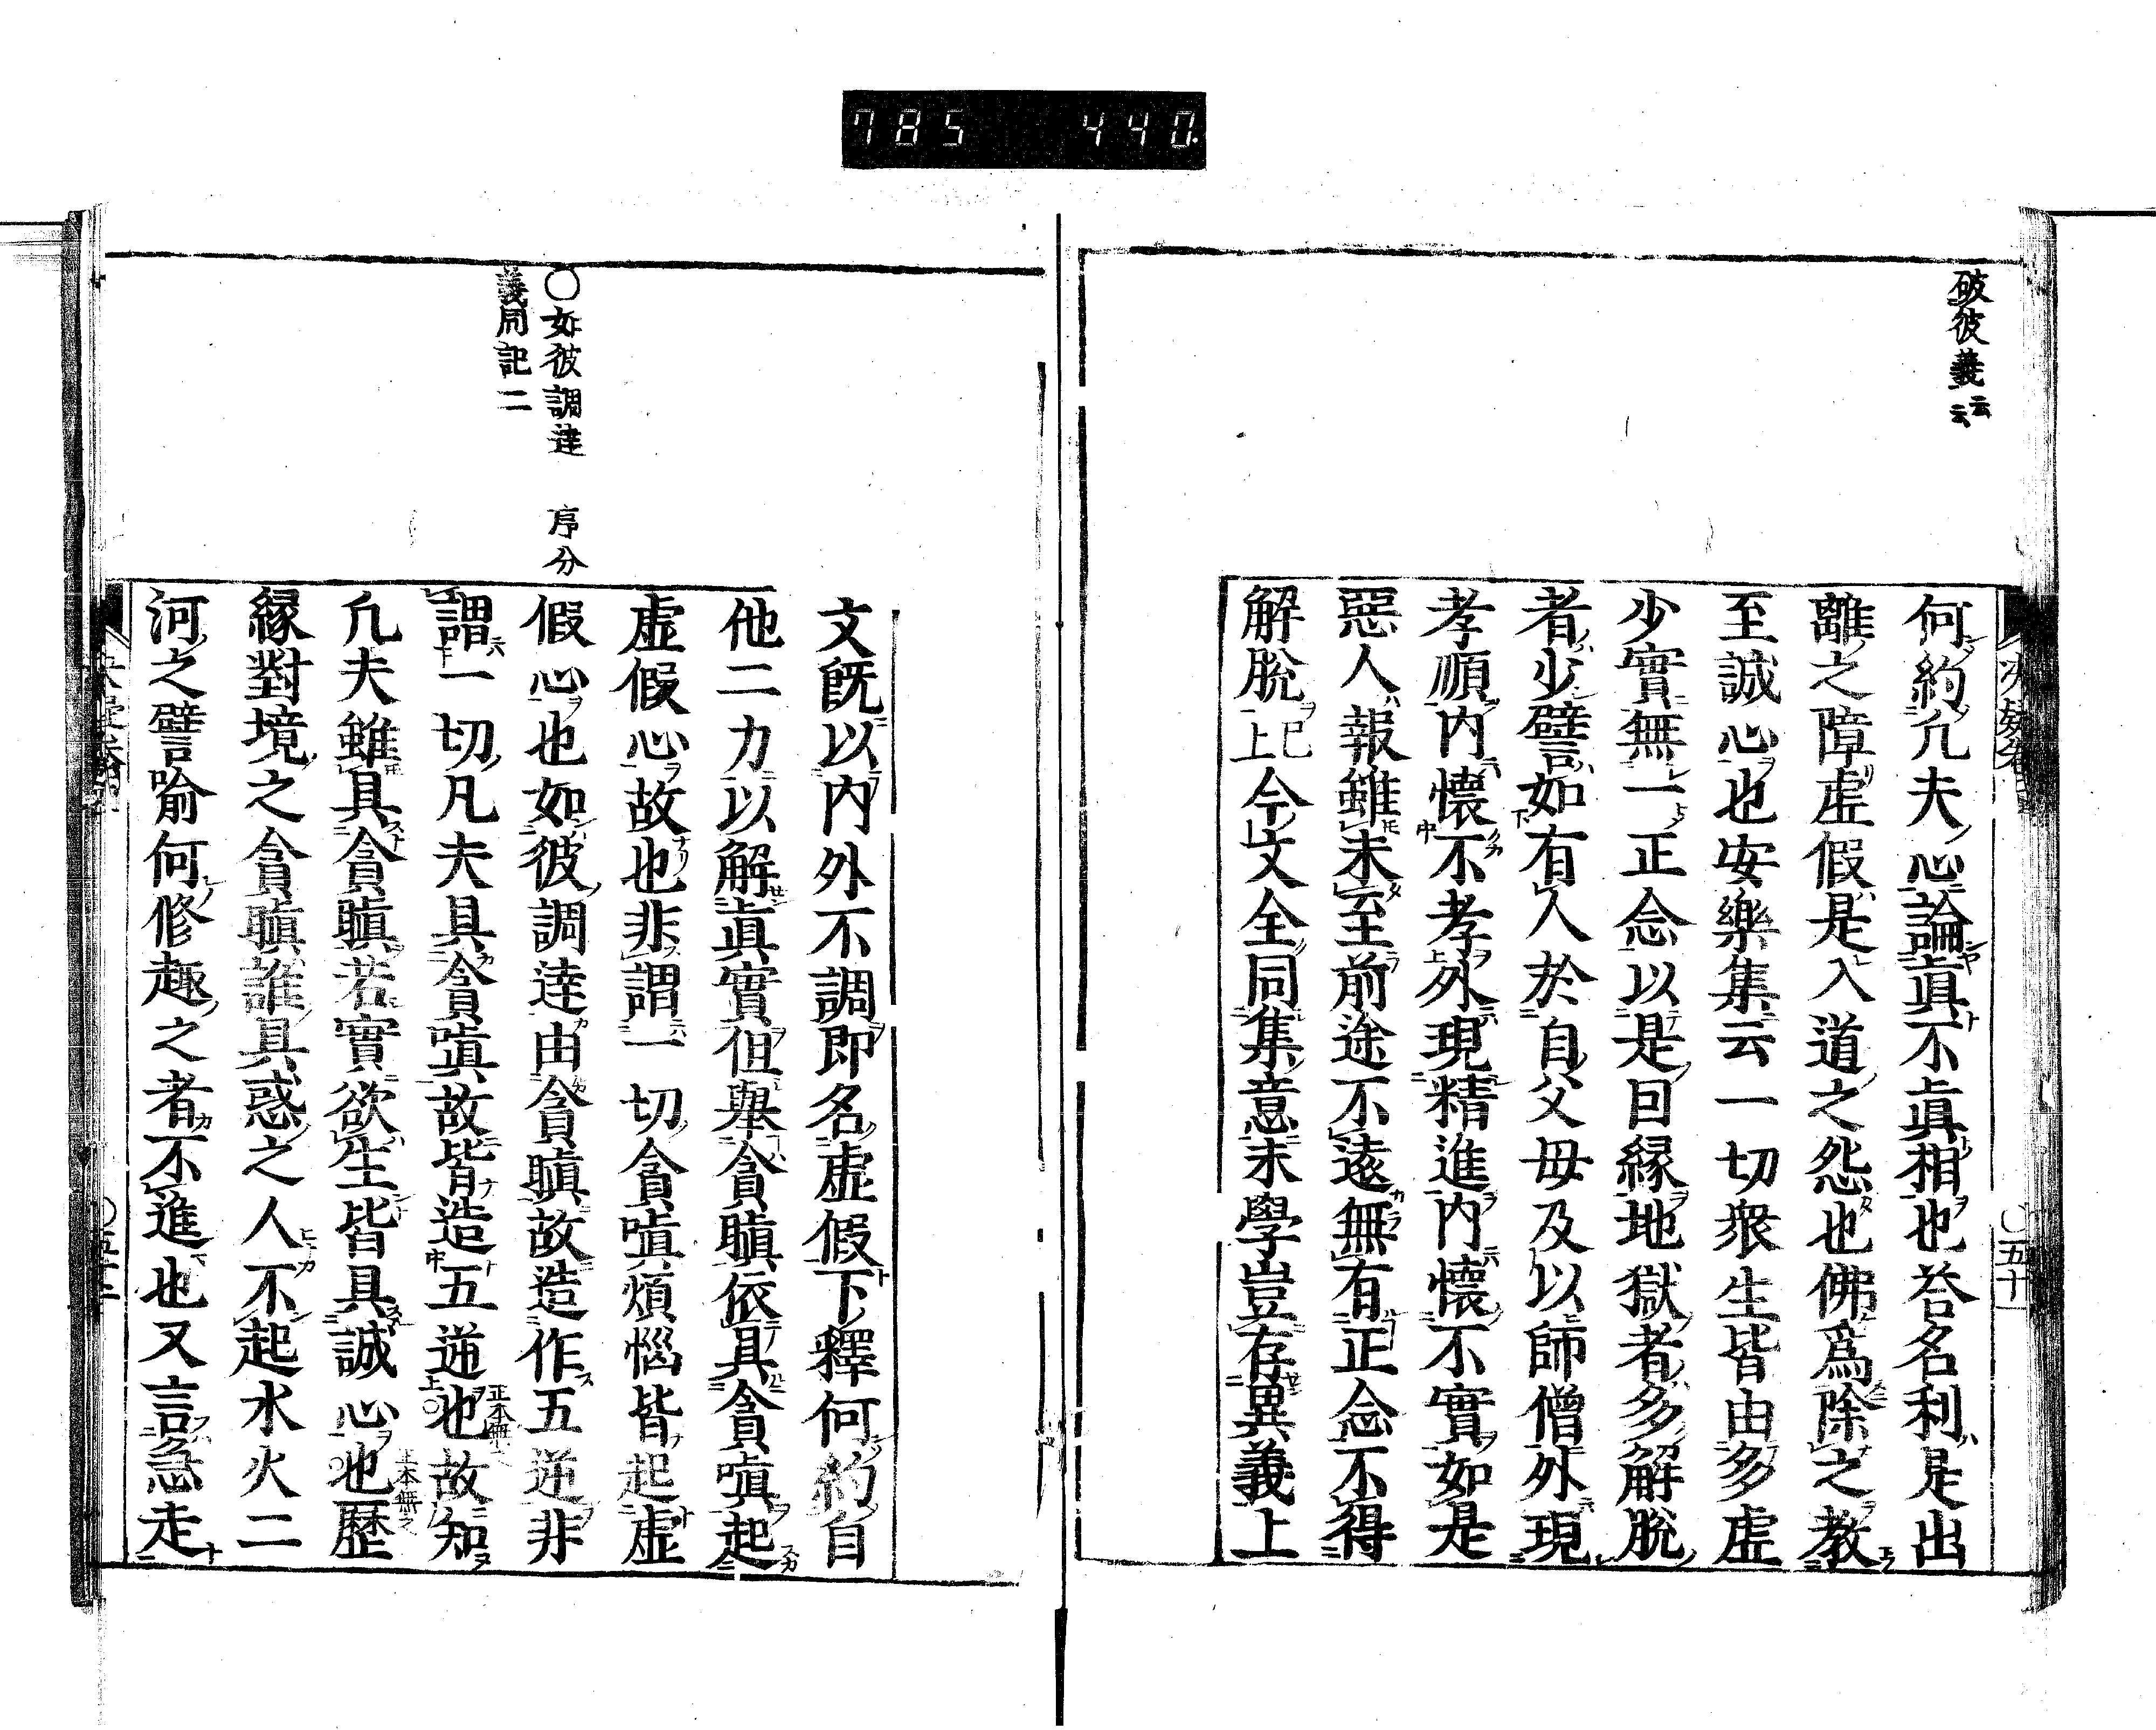 785 440
破彼義云云
何約凢夫心論眞不眞相也荅名利是出
離之障虛假是入道之怨也佛爲除之教
至誠心也安樂集云一切衆生皆由多虛
少實無一正念以是因縁地獄者多解脫
者少譬如有人於自父母及以師僧外現
孝順内懷不孝外現精進内懷不實如是
惡人報雖未至前途不遠無有正念不得
解脫已上今文全同集意末學豈存異義上
○如彼調達 序分
義同記二
文旣以内外不調即名虛假下釋何約自
他二力以解眞實但舉貪瞋依具貪嗔起
虛假心故也非謂一切貪嗔煩惱皆起虛
假心也如彼調達由貪瞋故造作五逆非
謂一切凡夫具貪嗔故皆造五逆也故知
凢夫雖具貪瞋若實欲生皆具誠心也歷
縁對境之貪瞋誰具惑之人不起水火二
河之譬喻何修趣之者不進也又言急走
五十